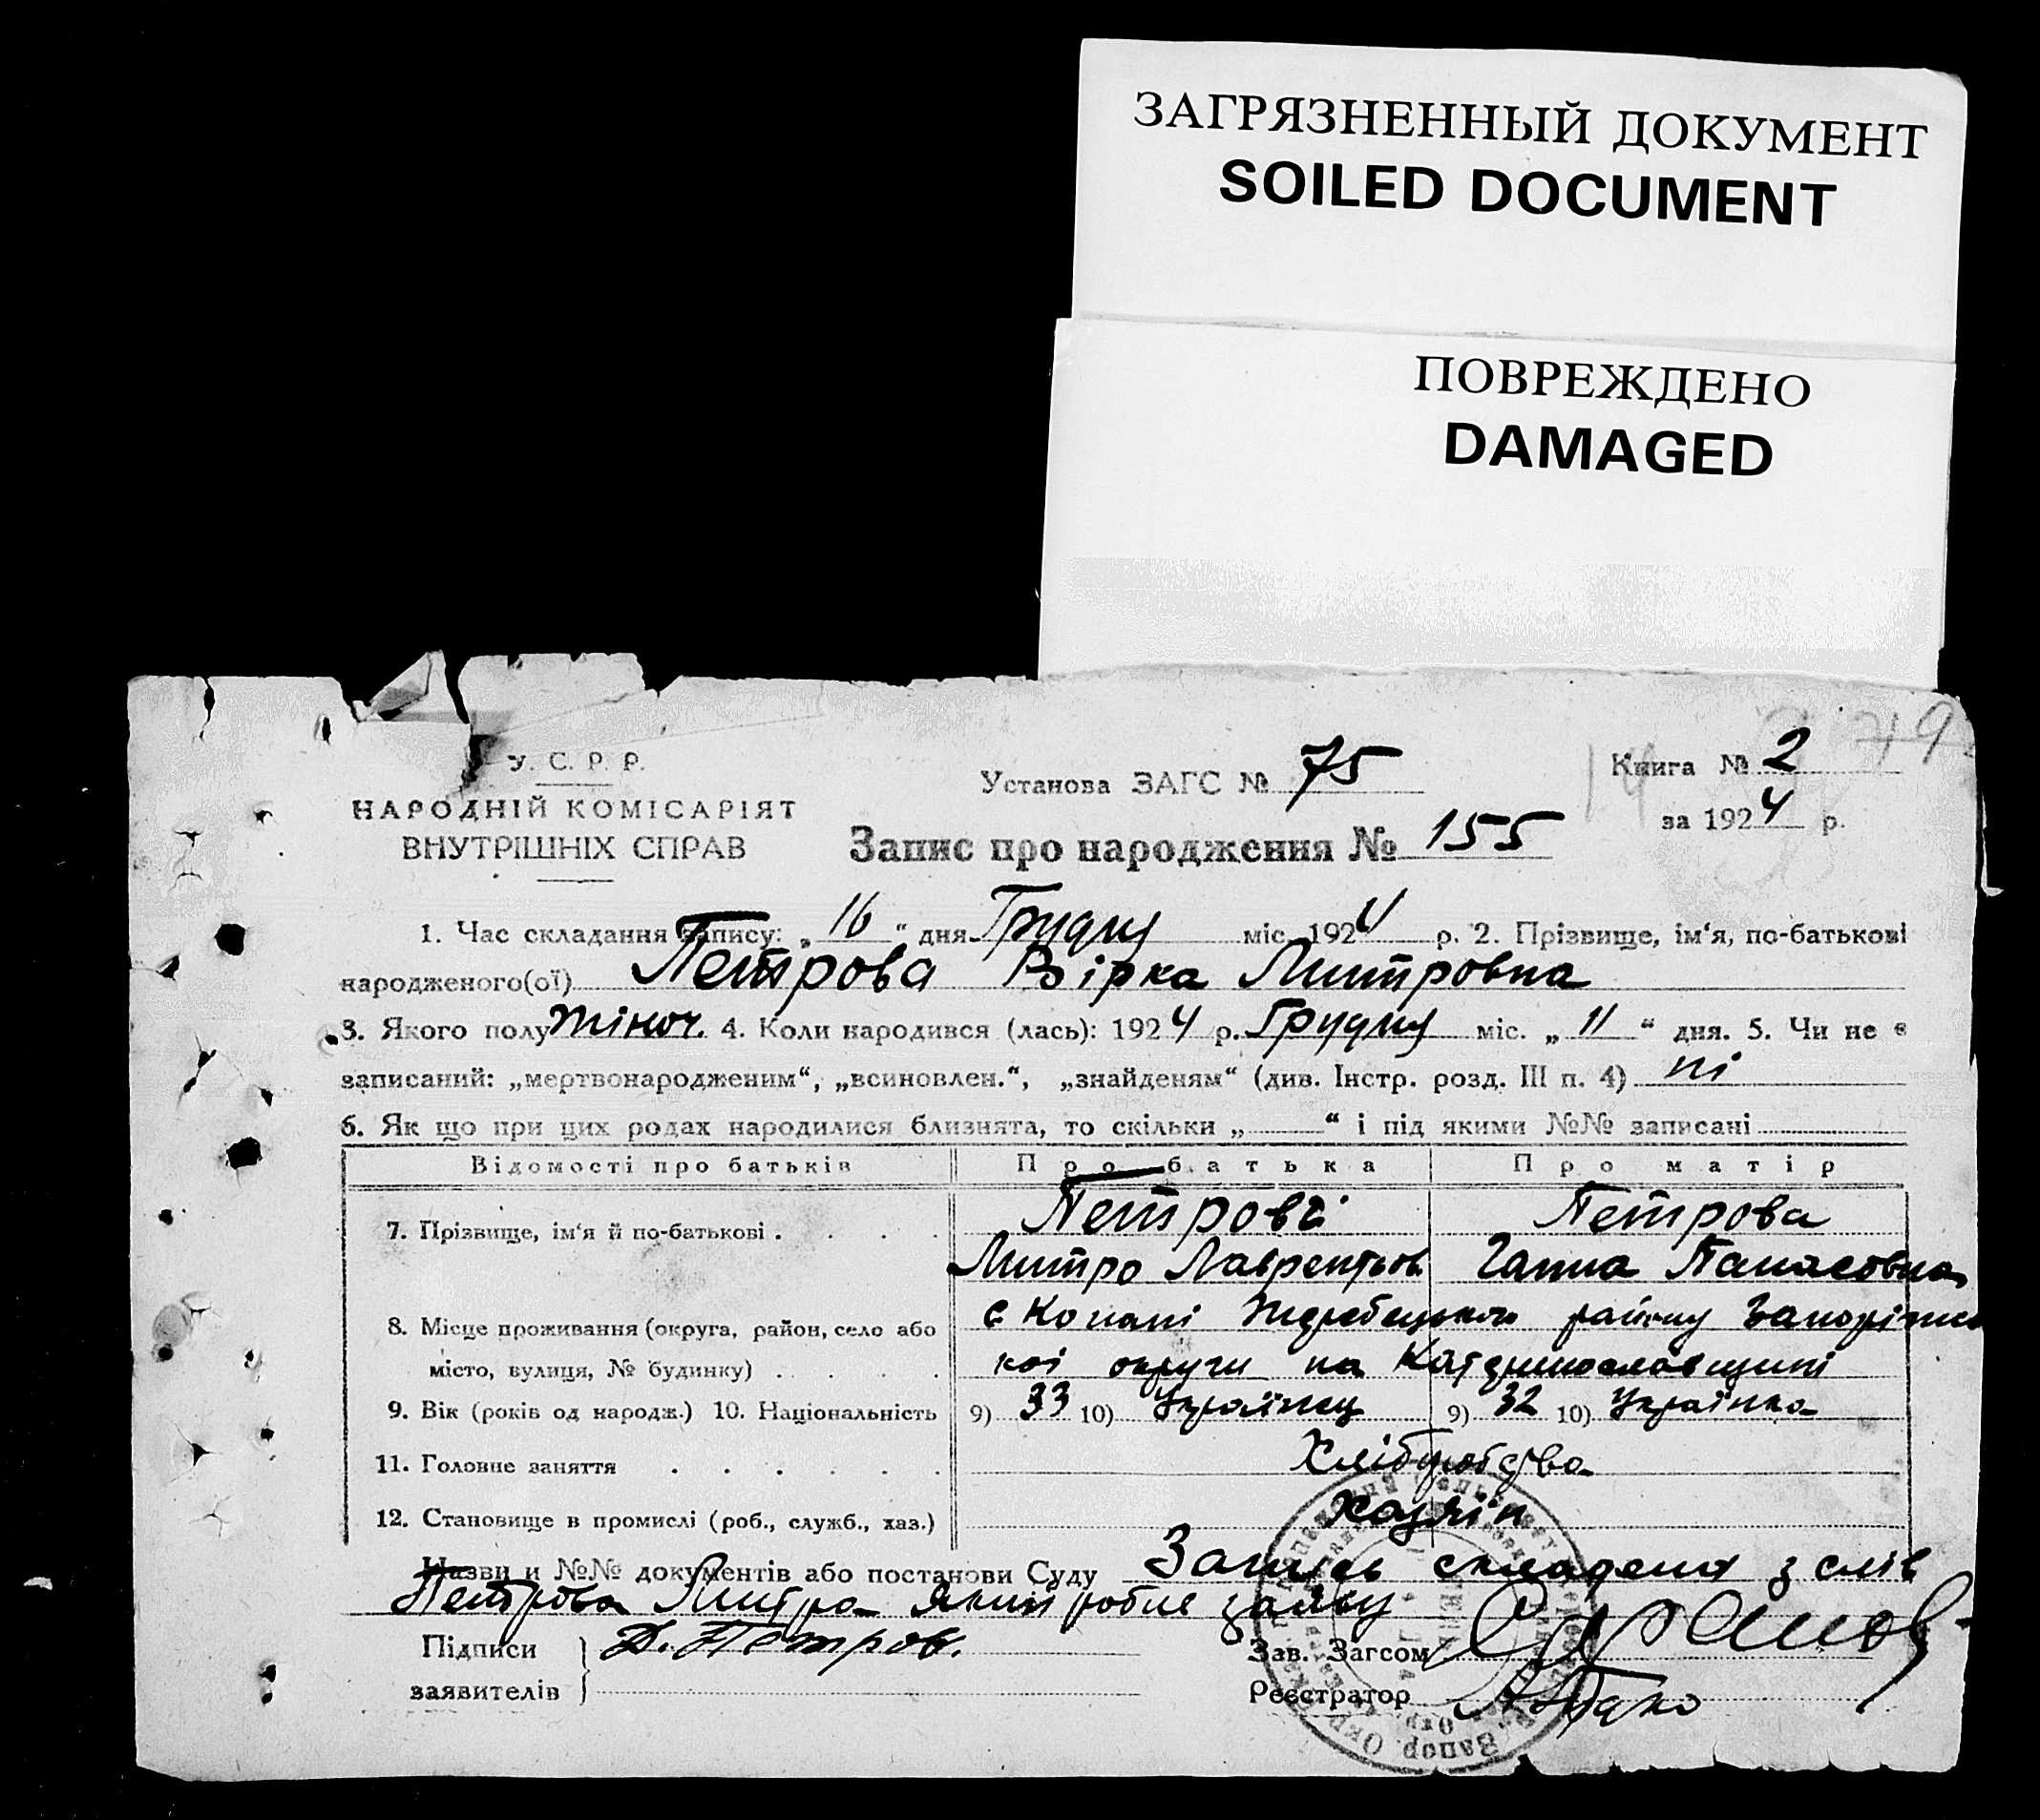 ЗАГРЯЗНЕННЫЙ ДОКУМЕНТ
SOILED DOCUMENT
ПОВРЕЖДЕНО
DAMAGED
79
У. С. Р. Р.
НАРОДНІЙ КОМІСАРІЯТ
ВНУТРІШНІХ СПРАВ
Установа ЗАГС № 75
Книга № 2
за 1924 р.
Запис про народження № 155
1. Час складання запису: „16“ дня Грудня міс. 1924 р. 2. Прізвище, ім‘я, по-батькові
народженого(ої) Петрова Вірка Митровна
3. Якого полу жіноч. 4. Коли народився (лась): 1924 р. Грудня міс. „11“ дня. 5. Чи не є
записаний: „мертвонародженим“, „всиновлен.“, „знайденям“ (див. Інстр. розд. III п. 4) ні
6. Як що при цих родах народилися близнята, то скільки „ “ і під якими №№ записані
Відомості про батьків Про батька Про матір
7. Прізвище, ім‘я й по-батькові . . . . Петров Петрова
Митро Лаврентьов. Ганна Панасовна
8. Місце проживання (округа, район, село або с Копані Жеребецького району Запоріжсь
місто, вулиця, № будинку) . . . . кої округи на Катеринославщині
9. Вік (років од народж.) 10. Національність 9) 33 10) Українец 9) 32 10) Українка
11. Головне заняття . . . . . . Хліборобства
12. Становище в промислі (роб., служб., хаз.) хазяїн
Назви и №№ документів або постанови Суду Запись складена з слів
Петрова Митра який робив заяву
Підписи
заявителів
Д. Петров.
Зав. Загсом
Реєстратор